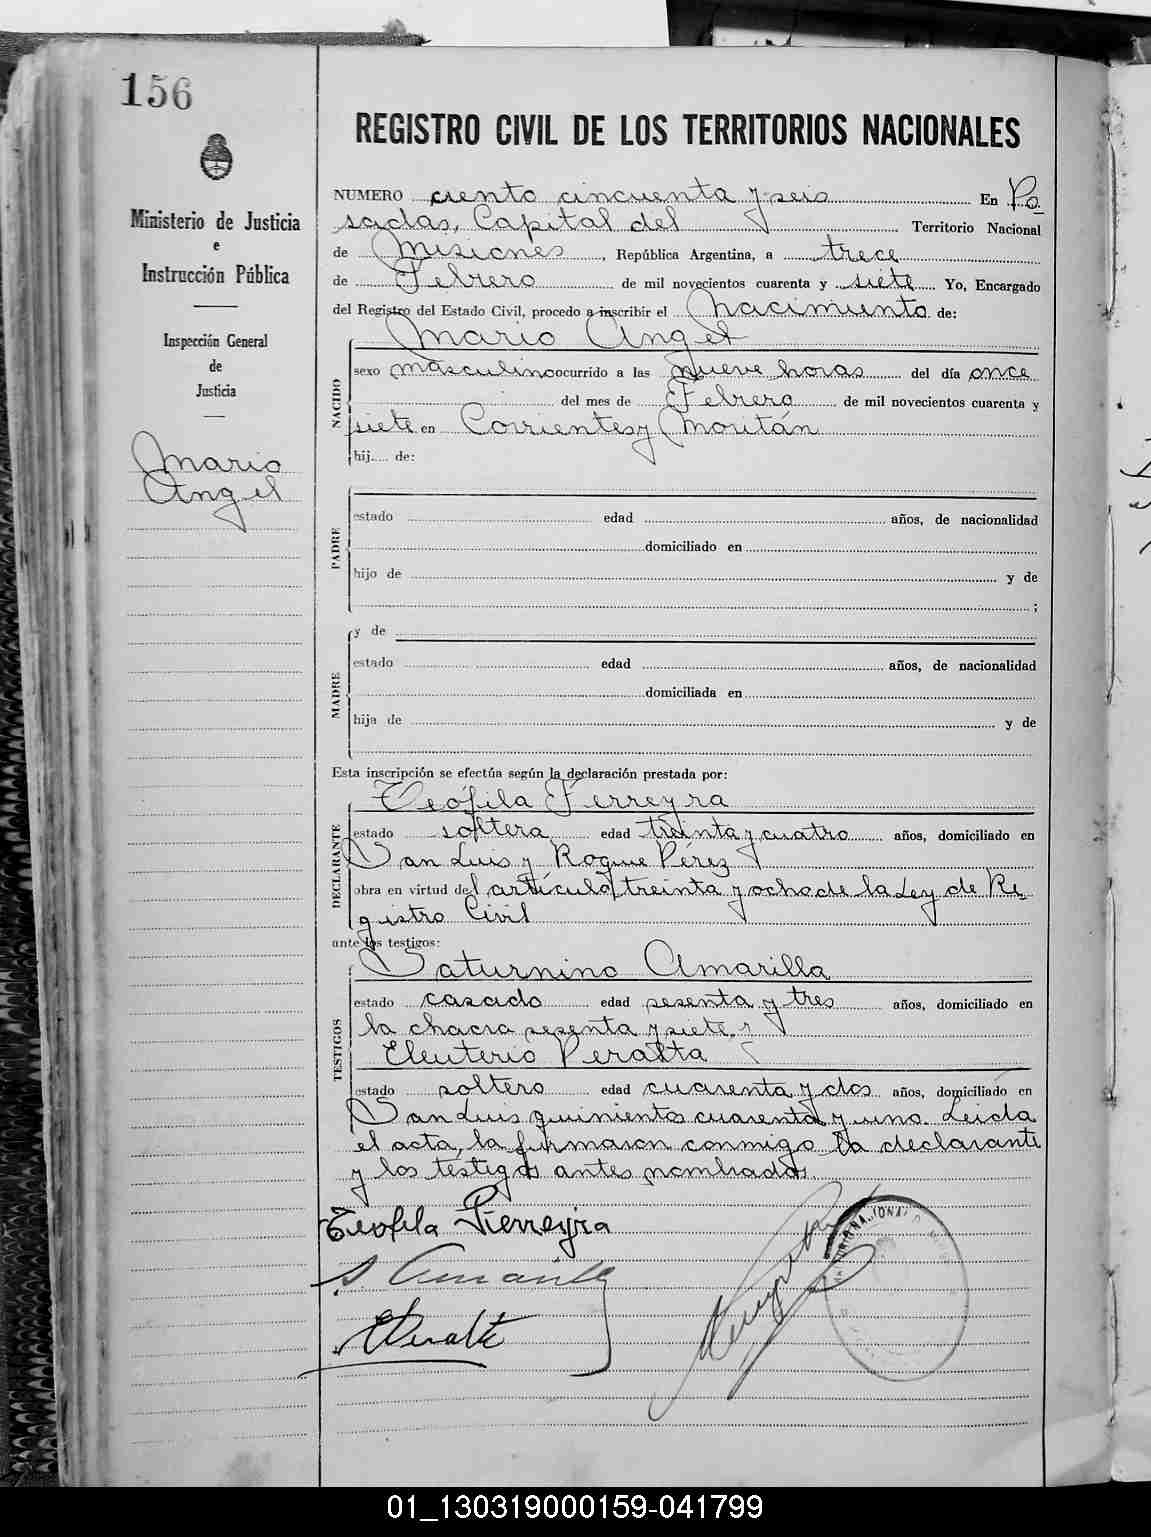 156
REGISTRO CIVIL DE LOS TERRITORIOS NACIONALES
Ministerio de Justicia
e
Instrucción Pública
Inspección General
de
Justicia
Mario
Angel
NUMERO ciento cincuenta y seis En Po
sadas, Capital del Territorio Nacional
de Misiones, República Argentina, a trece
de Febrero de mil novecientos cuarenta y siete Yo, Encargado
del Registro del Estado Civil, procedo a inscribir el Nacimiento de:
Mario Angel
NACIDO
sexo masculino ocurrido a las nueve horas del día once
del mes de Febrero de mil novecientos cuarenta y
siete en Corrientes y Moritán
hij.... de:
PADRE
estado edad años, de nacionalidad
domiciliado en
hijo de y de
;
y de
MADRE
estado edad años, de nacionalidad
domiciliada en
hija de y de
Esta inscripción se efectúa según la declaración prestada por:
Teófila Ferreyra
DECLARANTE
estado soltera edad treinta y cuatro años, domiciliado en
San Luis y Roque Pérez
obra en virtud del artículo treinta y ocho de la Ley de Re
gistro Civil
ante los testigos:
Saturnino Amarilla
TESTIGOS
estado casado edad sesenta y tres años, domiciliado en
la chacra sesenta y siete, y
Eleuterio Peralta
estado soltero edad cuarenta y dos años, domiciliado en
San Luis quinientos cuarenta y uno. Leida
el acta, la firmaron conmigo la declarante
y los testigos antes nombrados.
Teofila Fierreyra
S Amarilla
E Peralta
01_130319000159-041799